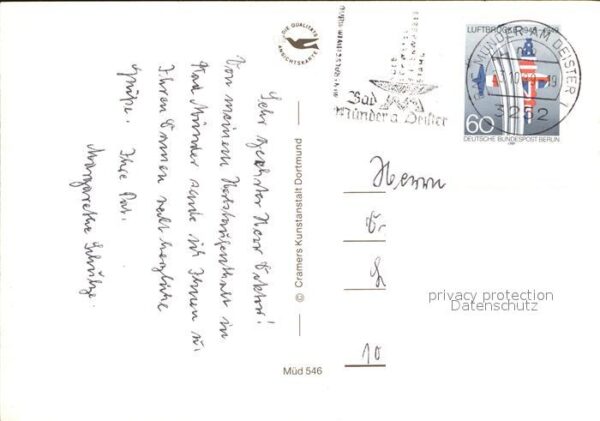 Sehr geehrter Herr Doktor!
Von meinem Herbstaufenthalt in
Bad Münder sende ich Ihnen u.
Ihren Damen recht herzliche
Grüße. Ihre Pat.
Margarethe Schultze.
DIE QUALITÄTS
ANSICHTSKARTE
© Cramers Kunstanstalt Dortmund
Müd 546
Bad
Münder a Deister
LUFTBRÜCKE
60
DEUTSCHE BUNDESPOST BERLIN
BAD MÜNDER AM DEISTER 1
3252
Herrn
10
privacy protection
Datenschutz